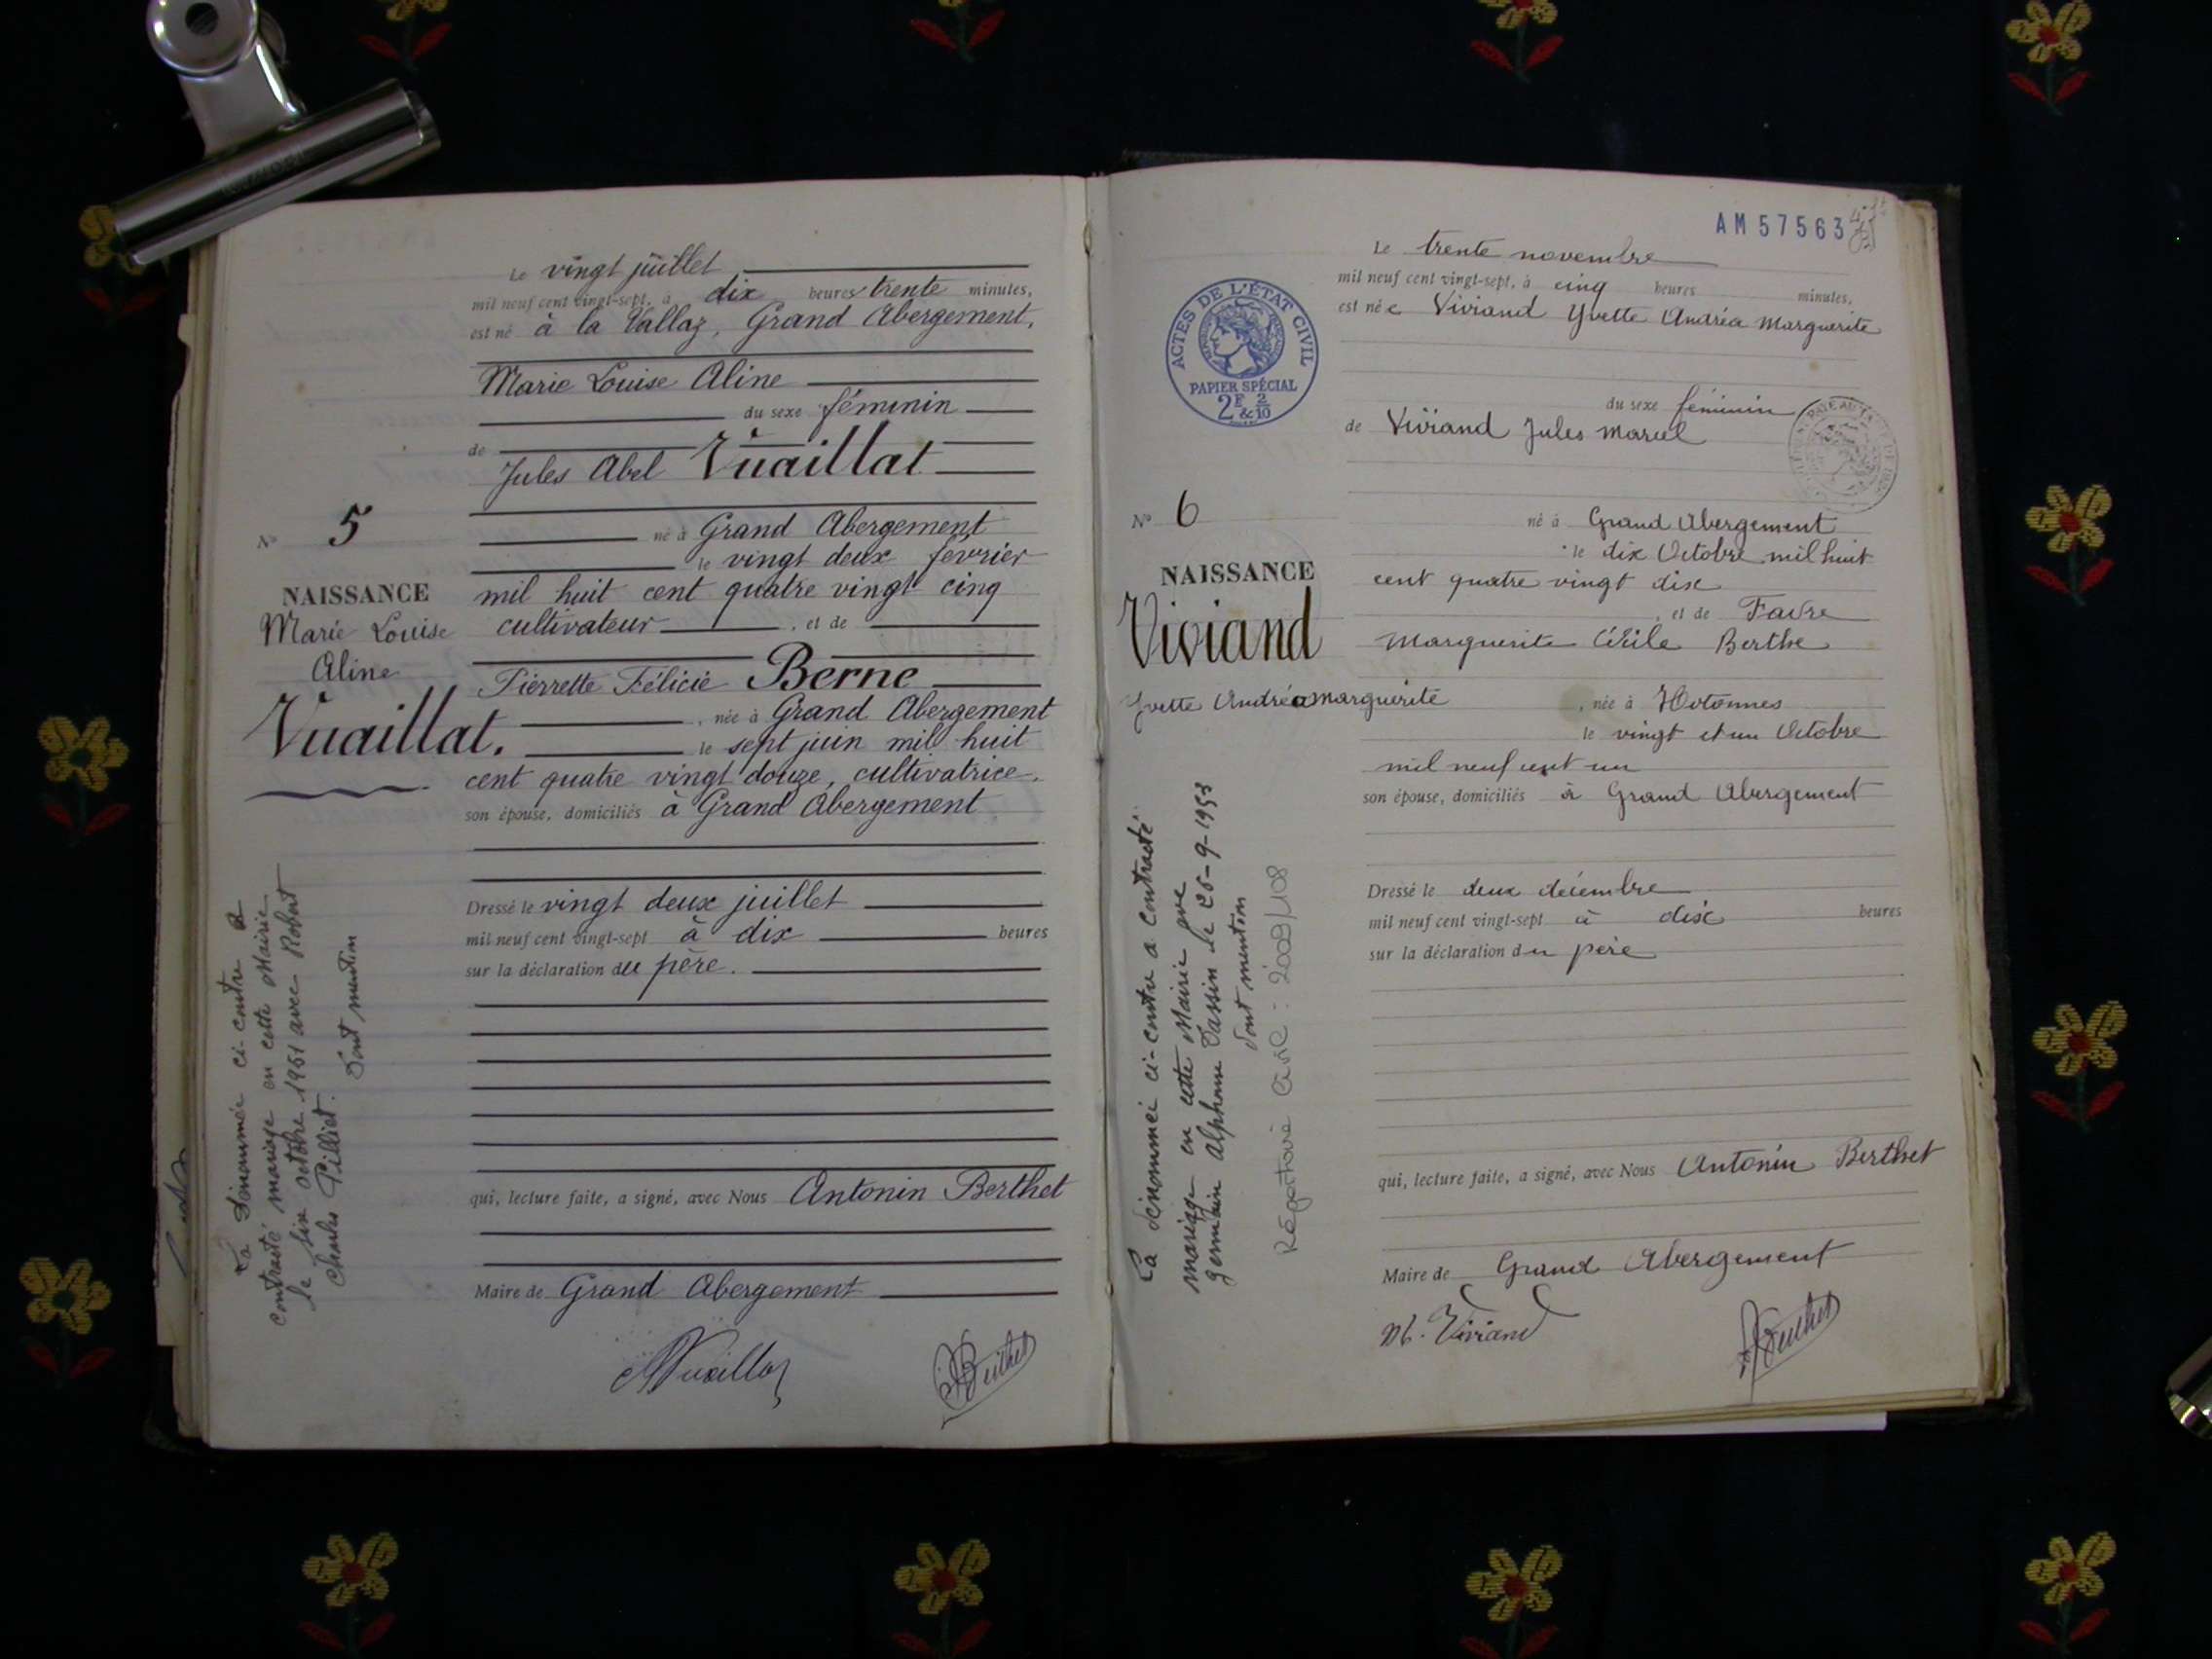 Le vingt juillet
mil neuf cent vingt-sept, à dix heures trente minutes,
est né à la Vallaz, Grand Abergement,
Marie Louise Aline
du sexe féminin
de
Jules Abel Vuaillat
né à Grand Abergement
le vingt deux février
mil huit cent quatre vingt cinq
cultivateur, et de
Pierrette Félicie Berne
, née à Grand Abergement
le sept juin mil huit
cent quatre vingt douze, cultivatrice.
son épouse, domiciliés à Grand Abergement
Dressé le vingt deux juillet
mil neuf cent vingt-sept à dix heures
sur la déclaration du père.
qui, lecture faite, a signé, avec Nous Antonin Berthet
Maire de Grand Abergement
N° 5
NAISSANCE
Marie Louise
Aline
Vuaillat.
La dénommée ci-contre a
contracté mariage en cette Mairie
le six octobre 1951 avec Robert
Charles Pilliet.
Dont mention
AM 57563
ACTES DE L'ÉTAT CIVIL
PAPIER SPÉCIAL
2F & 2/10
Le trente novembre
mil neuf cent vingt-sept, à cinq heures minutes,
est née Viviand Yvette Andréa Marguerite
du sexe féminin
de Viviand Jules Marcel
né à Grand Abergement
le dix Octobre mil huit
cent quatre vingt dix
, et de Favre
Marguerite Cécile Berthe
, née à Hotonnes
le vingt et un Octobre
mil neuf cent un
son épouse, domiciliés à Grand Abergement
Dressé le deux décembre
mil neuf cent vingt-sept à dix heures
sur la déclaration du père
qui, lecture faite, a signé, avec Nous Antonin Berthet
Maire de Grand Abergement
M. Viviand
N° 6
NAISSANCE
Viviand
Yvette Andréa Marguerite
La dénommée ci-contre a contracté
mariage en cette Mairie avec
Germain Alphonse Tassin le 26-9-1953
Dont mention
Répertoire Civil : 2009/108